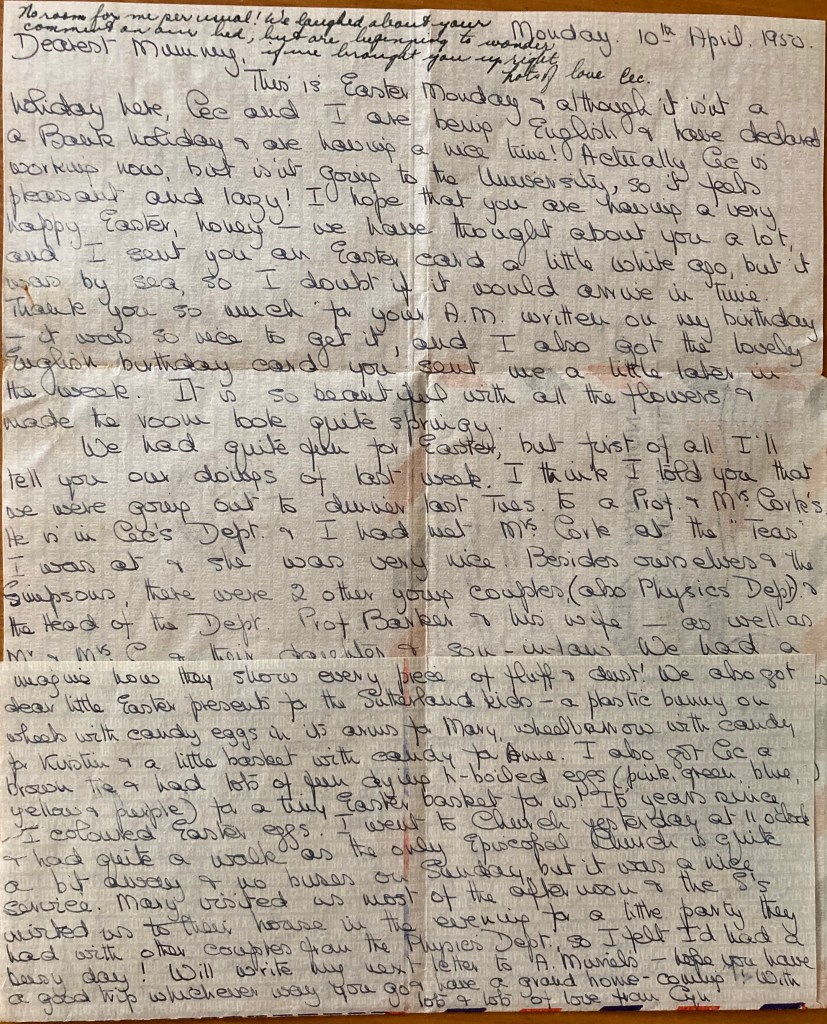 No room for me per usual! We laughed about your
comment on our bed, but are beginning to wonder
if we brought you up right
lots of love Cec.
Monday. 10th April. 1950.
Dearest Mummy,
This is Easter Monday & although it isn't a
holiday here, Cec and I are being English & have declared
a Bank holiday & are having a nice time! Actually Cec is
working now, but isn't going to the University, so it feels
pleasant and lazy! I hope that you are having a very
happy Easter, honey – we have thought about you a lot,
and I sent you an Easter card a little while ago, but it
was by sea, so I doubt if it would arrive in time.
Thank you so much for your A.M. written on my birthday
– it was so nice to get it, and I also got the lovely
English birthday card you sent me a little later in
the week. It is so beautiful with all the flowers &
made the room look quite springy.
We had quite fun for Easter, but first of all I'll
tell you our doings of last week. I think I told you that
we were going out to dinner last Tues. to a Prof. & Mrs Cork's.
He is in Cec's Dept. & I had met Mrs Cork at the "Teas"
I was at & she was very nice. Besides ourselves & the
Simpsons, there were 2 other young couples, (also Physics Dept) &
the Head of the Dept. Prof Barker & his wife – as well as
Mr & Mrs C & their daughter & son-in-law We had a
imagine how they show every piece of fluff & dust! We also got
dear little Easter presents for the Sutherland kids – a plastic bunny on
wheels with candy eggs in its arms for Mary, wheelbarrow with candy
for Kirstin & a little basket with candy for Anne. I also got Cec a
brown tie & had lots of fun dying h-boiled eggs (pink, green, blue,
yellow & purple) for a tiny Easter basket for us! It's years since
I coloured Easter eggs. I went to Church yesterday at 11 o'clock
& had quite a walk as the only Episcopal Church is quite
a bit away & no buses on Sunday, but it was a nice
service. Mary visited us most of the afternoon & the S's
invited us to their house in the evening for a little party they
had with other couples from the Physics Dept., so I felt I'd had a
busy day! Will write my next letter to A. Muriels – hope you have
a good trip whichever way you go & have a grand home-coming! With
lots & lots of love from